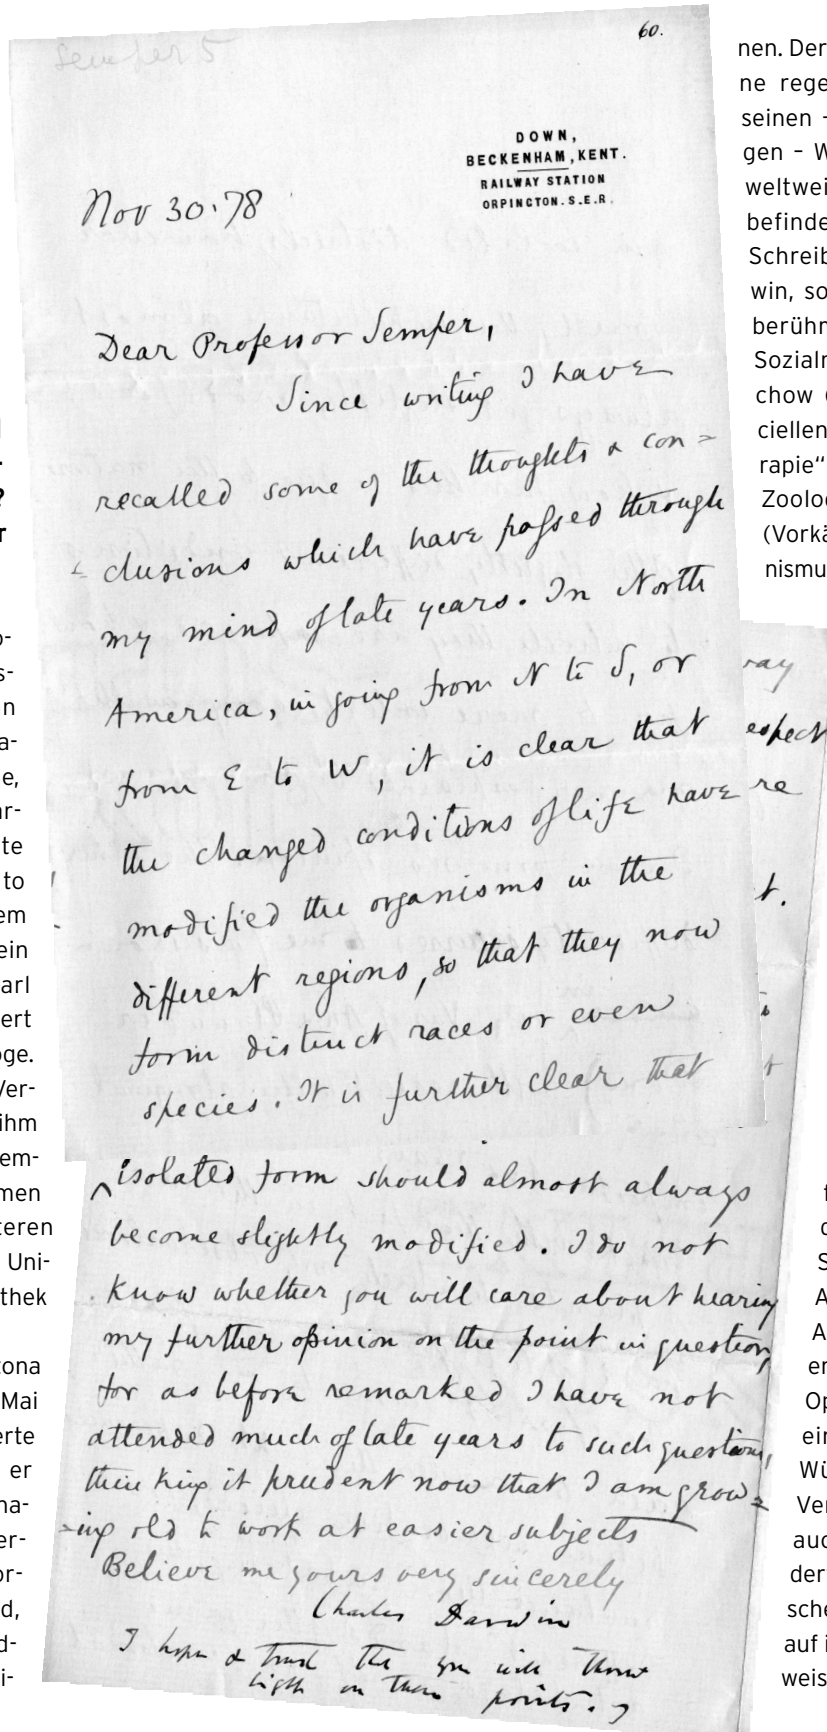 Semper 5
60.
DOWN,
BECKENHAM, KENT.
RAILWAY STATION
ORPINGTON. S.E.R.
Nov 30. 78
Dear Professor Semper,
Since writing I have
recalled some of the thoughts & con=
=clusions which have passed through
my mind of late years. In North
America, in going from N to S, or
from E to W, it is clear that
the changed conditions of life have
modified the organisms in the
different regions, so that they now
form distinct races or even
species. It is further clear that
isolated form should almost always
become slightly modified. I do not
know whether you will care about hearing
my further opinion on the point in question,
for as before remarked I have not
attended much of late years to such questions,
thinking it prudent now that I am grow=
=ing old to work at easier subjects
Believe me yours very sincerely
Charles Darwin
I hope & trust the you will throw
light on these points.
espect
re
t.
nen. Der
ne rege
seinen -
gen – W
weltwei
befinde
Schreib
win, so
berühm
Sozialr
chow
ciellen
rapie“
Zoolog
(Vorkä
nismu
?
r
o-
s-
n
a-
e,
ar-
te
to
em
ein
arl
ert
oge.
Ver-
ihm
em-
men
teren
Uni-
thek
tona
Mai
erte
er
na-
er-
or-
d,
d-
i-
f
S
A
A
er
Op
ein
Wü
Ver
auc
der
sche
auf i
weis